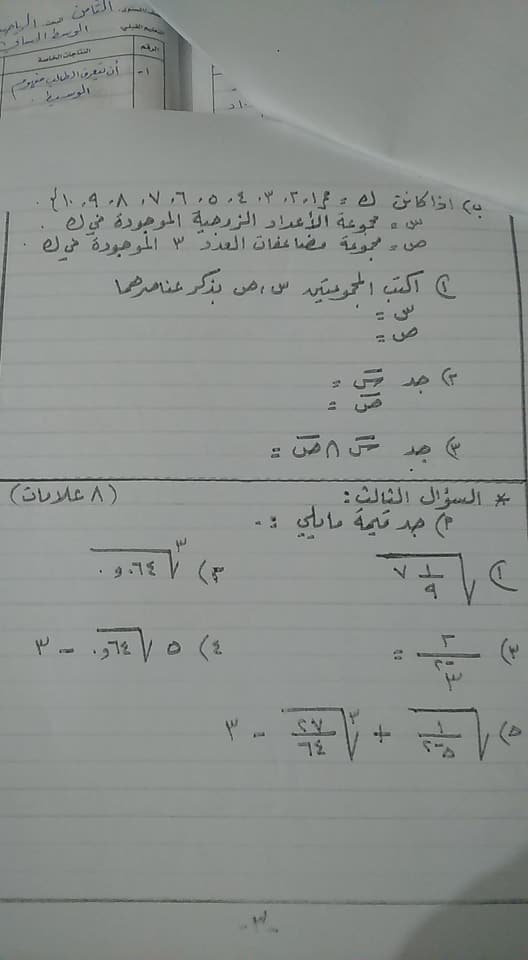 الثامن
الوسط الحسابي
الرقم
النتاجات الخاصة
١-
أن يتعرف الطالب مفهوم
الوسيط
ب) اذا كانت ك = {١، ٢، ٣، ٤، ٥، ٦، ٧، ٨، ٩، ١٠}.
س = مجموعة الأعداد الزوجية الموجودة في ك.
ص = مجموعة مضاعفات العدد ٣ الموجودة في ك.
١) اكتب المجموعتين س، ص بذكر عناصرهما
س =
ص =
٢) جد س̅ =
ص̅ =
٣) جد س̅ ∩ ص̅ =
* السؤال الثالث: (٨ علامات)
م) جد قيمة ما يلي :-
١) √(٧ ١/٩) ٢) ٣√٠٦٤و٠
٣) ٢/٣^-٢ = ٤) ٥ √٦٤و٠ - ٣
٥) √(١/٥^-٢) + ٣√(٢٧/٦٤) - ٣
-٣-